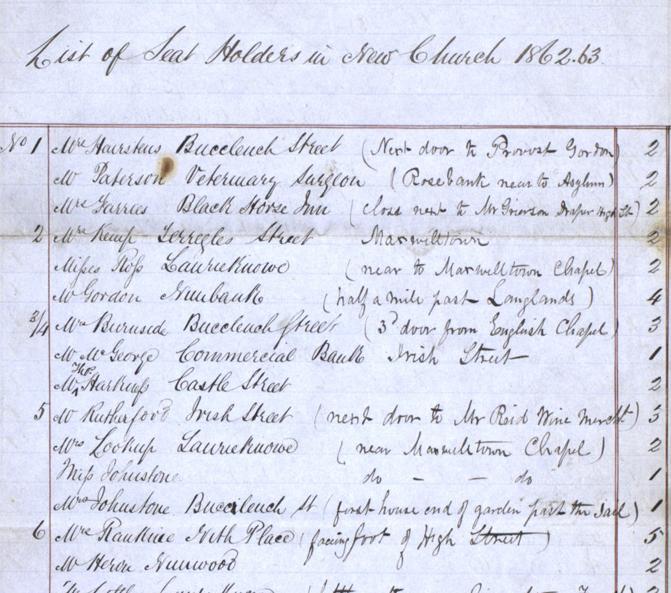 List of Seat Holders in New Church 1862.63
No 1 Mrs Hairstens Buccleuch Street (Next door to Provost Gordon) 2
Mr Paterson Veterinary Surgeon (Rosebank near to Asylum) 2
Mrs Garries Black Horse Inn (close next to Mr Grierson Draper High St) 2
2 Mrs Kemp Terregles Street Maxwelltown 2
Misses Ross Laurieknowe (near to Maxwelltown Chapel) 2
Mr Gordon Nunbank (half a mile past Langlands) 4
3/4 Mrs Burnside Buccleuch Street (3d door from English Chapel) 3
Mr McGeorge Commercial Bank Irish Street 1
Mr Thos Harkness Castle Street 2
5 Mr Rutherford Irish Street (next door to Mr Reid Wine Mercht) 3
Mrs Lookup Laurieknowe (near Maxwelltown Chapel) 2
Miss Johnstone do — — do 1
Mrs Johnstone Buccleuch St (first house end of garden past the Jail) 1
6 Mrs Rankine Nith Place (facing foot of High Street) 5
Mr Heron Nunwood 2